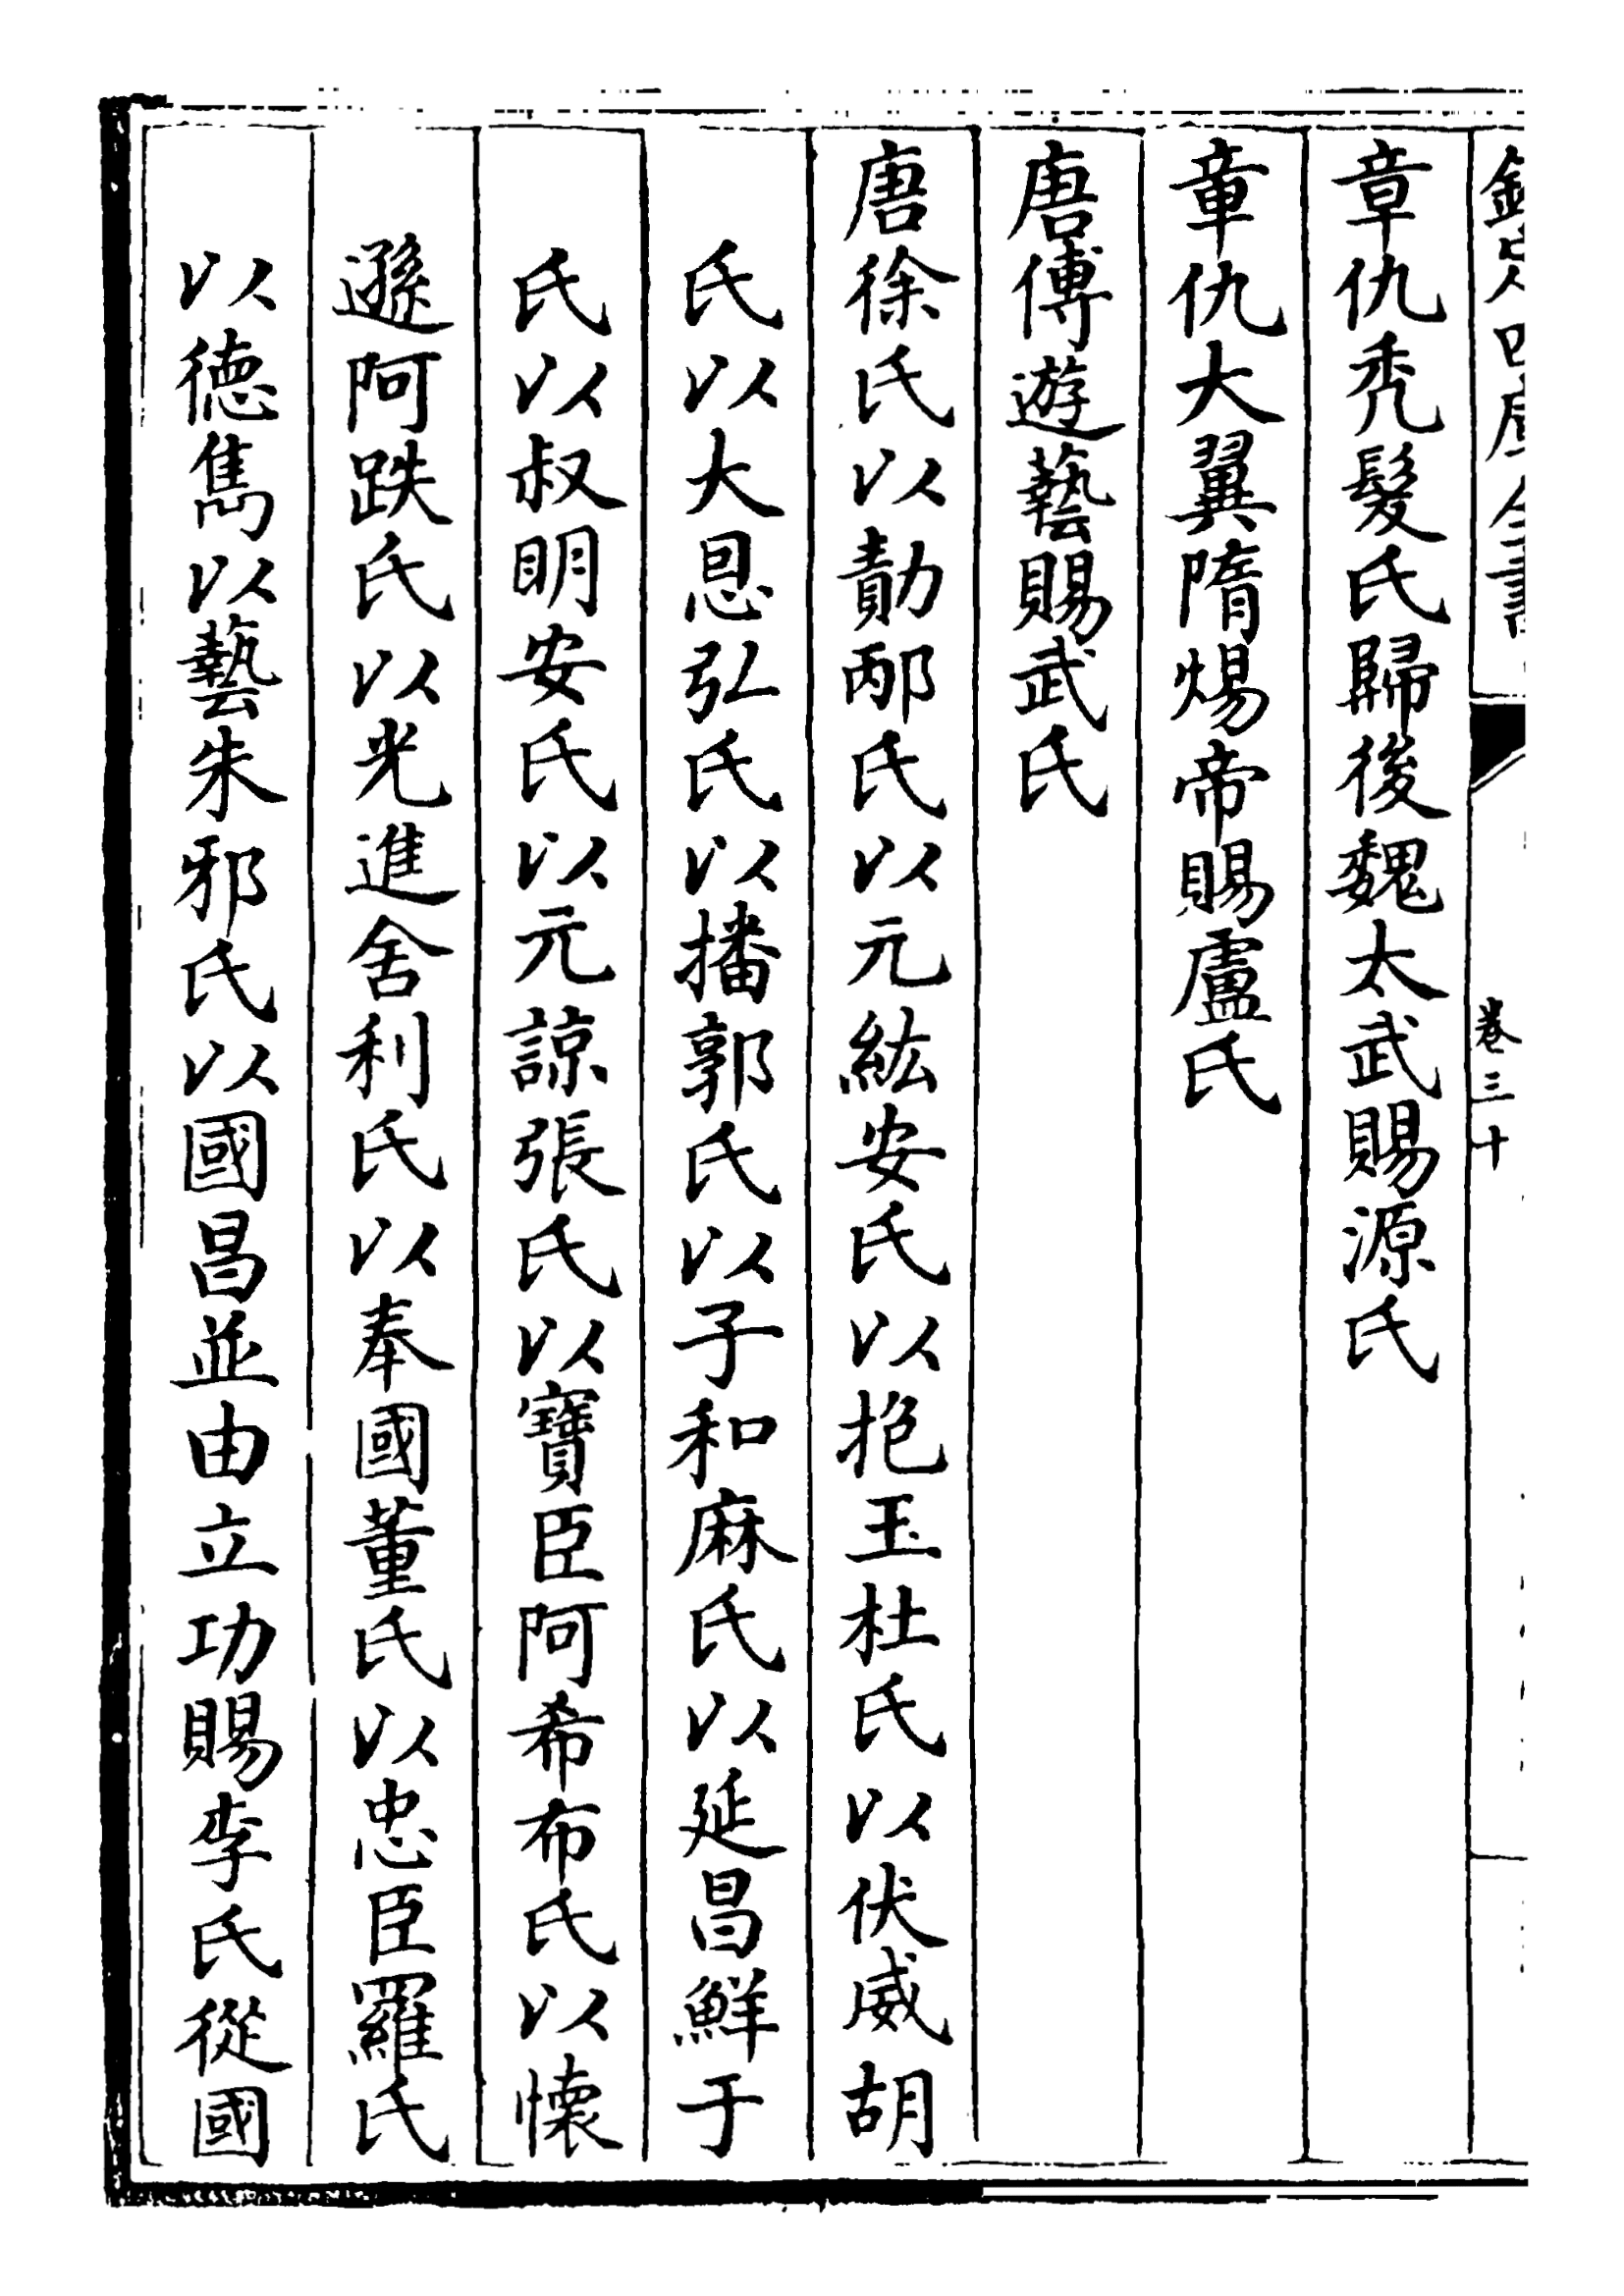 欽定四庫全書
卷三十
章仇禿髮氏歸後魏太武賜源氏
章仇大翼隋煬帝賜盧氏
唐傅遊藝賜武氏
唐徐氏以勣邴氏以元紘安氏以抱玉杜氏以伏威胡
氏以大恩弘氏以播郭氏以子和麻氏以延昌鮮于
氏以叔明安氏以元諒張氏以寶臣阿希布氏以懷
遜阿跌氏以光進舍利氏以奉國董氏以忠臣羅氏
以德雋以藝朱邪氏以國昌並由立功賜李氏從國